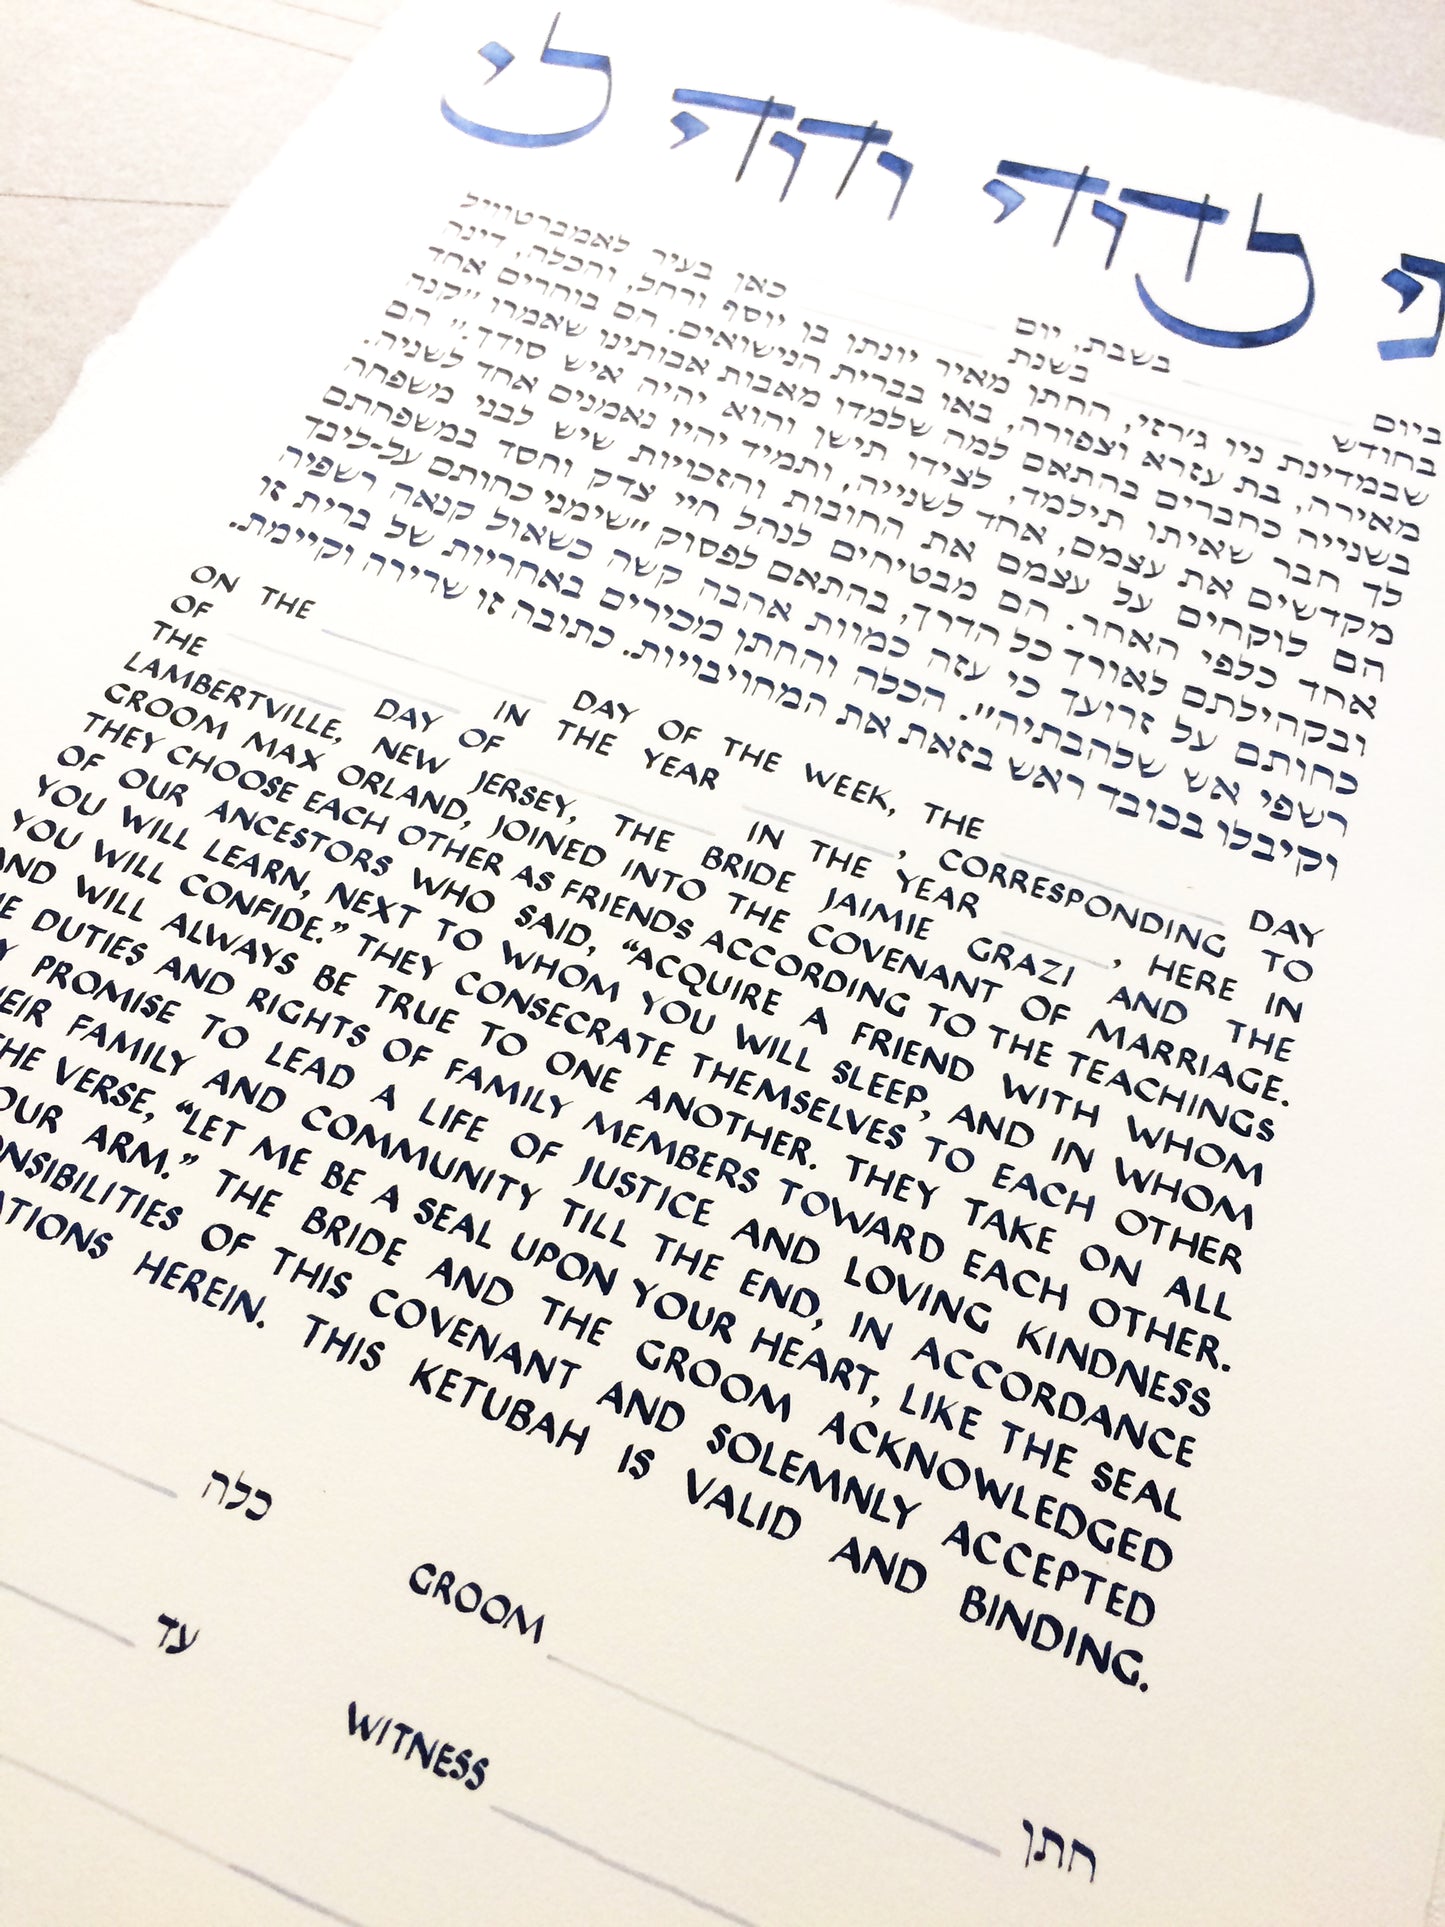 ני לדודי ודודי לי
ביום בשבת, יום
בחודש בשנת כאן בעיר לאמברטוויל
שבמדינת ניו ג'רזי, החתן מאיר יונתן בן יוסף ורחל, והכלה, דינה
מאירה, בת עזרא וצפורה, באו בברית הנישואים. הם בוחרים אחד
בשנייה כחברים בהתאם למה שלמדו מאבות אבותינו שאמרו "קנה
לך חבר שאיתו תילמד, לצידו תישן והוא יהיה איש סודך." הם
מקדשים את עצמם, אחד לשנייה, ותמיד יהיו נאמנים אחד לשניה.
הם לוקחים על עצמם את החובות והזכויות שיש לבני משפחה
אחד כלפי האחר. הם מבטיחים לנהל חיי צדק וחסד במשפחתם
ובקהילתם לאורך כל הדרך, בהתאם לפסוק "שימני כחותם על-ליבך
כחותם על זרועך כי עזה כמוות אהבה קשה כשאול קנאה רשפיה
רשפי אש שלהבתיה". הכלה והחתן מכירים באחריות של ברית זו
וקיבלו בכובד ראש בזאת את המחויבויות. כתובה זו שרירה וקיימת.
ON THE DAY OF THE WEEK, THE DAY
OF IN THE YEAR , CORRESPONDING TO
THE DAY OF IN THE YEAR , HERE IN
LAMBERTVILLE, NEW JERSEY, THE BRIDE JAIMIE GRAZI AND THE
GROOM MAX ORLAND, JOINED INTO THE COVENANT OF MARRIAGE.
THEY CHOOSE EACH OTHER AS FRIENDS ACCORDING TO THE TEACHINGS
OF OUR ANCESTORS WHO SAID, “ACQUIRE A FRIEND WITH WHOM
YOU WILL LEARN, NEXT TO WHOM YOU WILL SLEEP, AND IN WHOM
YOU WILL CONFIDE.” THEY CONSECRATE THEMSELVES TO EACH OTHER
AND WILL ALWAYS BE TRUE TO ONE ANOTHER. THEY TAKE ON ALL
DUTIES AND RIGHTS OF FAMILY MEMBERS TOWARD EACH OTHER.
PROMISE TO LEAD A LIFE OF JUSTICE AND LOVING KINDNESS
FAMILY AND COMMUNITY TILL THE END, IN ACCORDANCE
THE VERSE, “LET ME BE A SEAL UPON YOUR HEART, LIKE THE SEAL
OUR ARM.” THE BRIDE AND THE GROOM ACKNOWLEDGED
ONSIBILITIES OF THIS COVENANT AND SOLEMNLY ACCEPTED
ATIONS HEREIN. THIS KETUBAH IS VALID AND BINDING.
כלה GROOM חתן
עד WITNESS